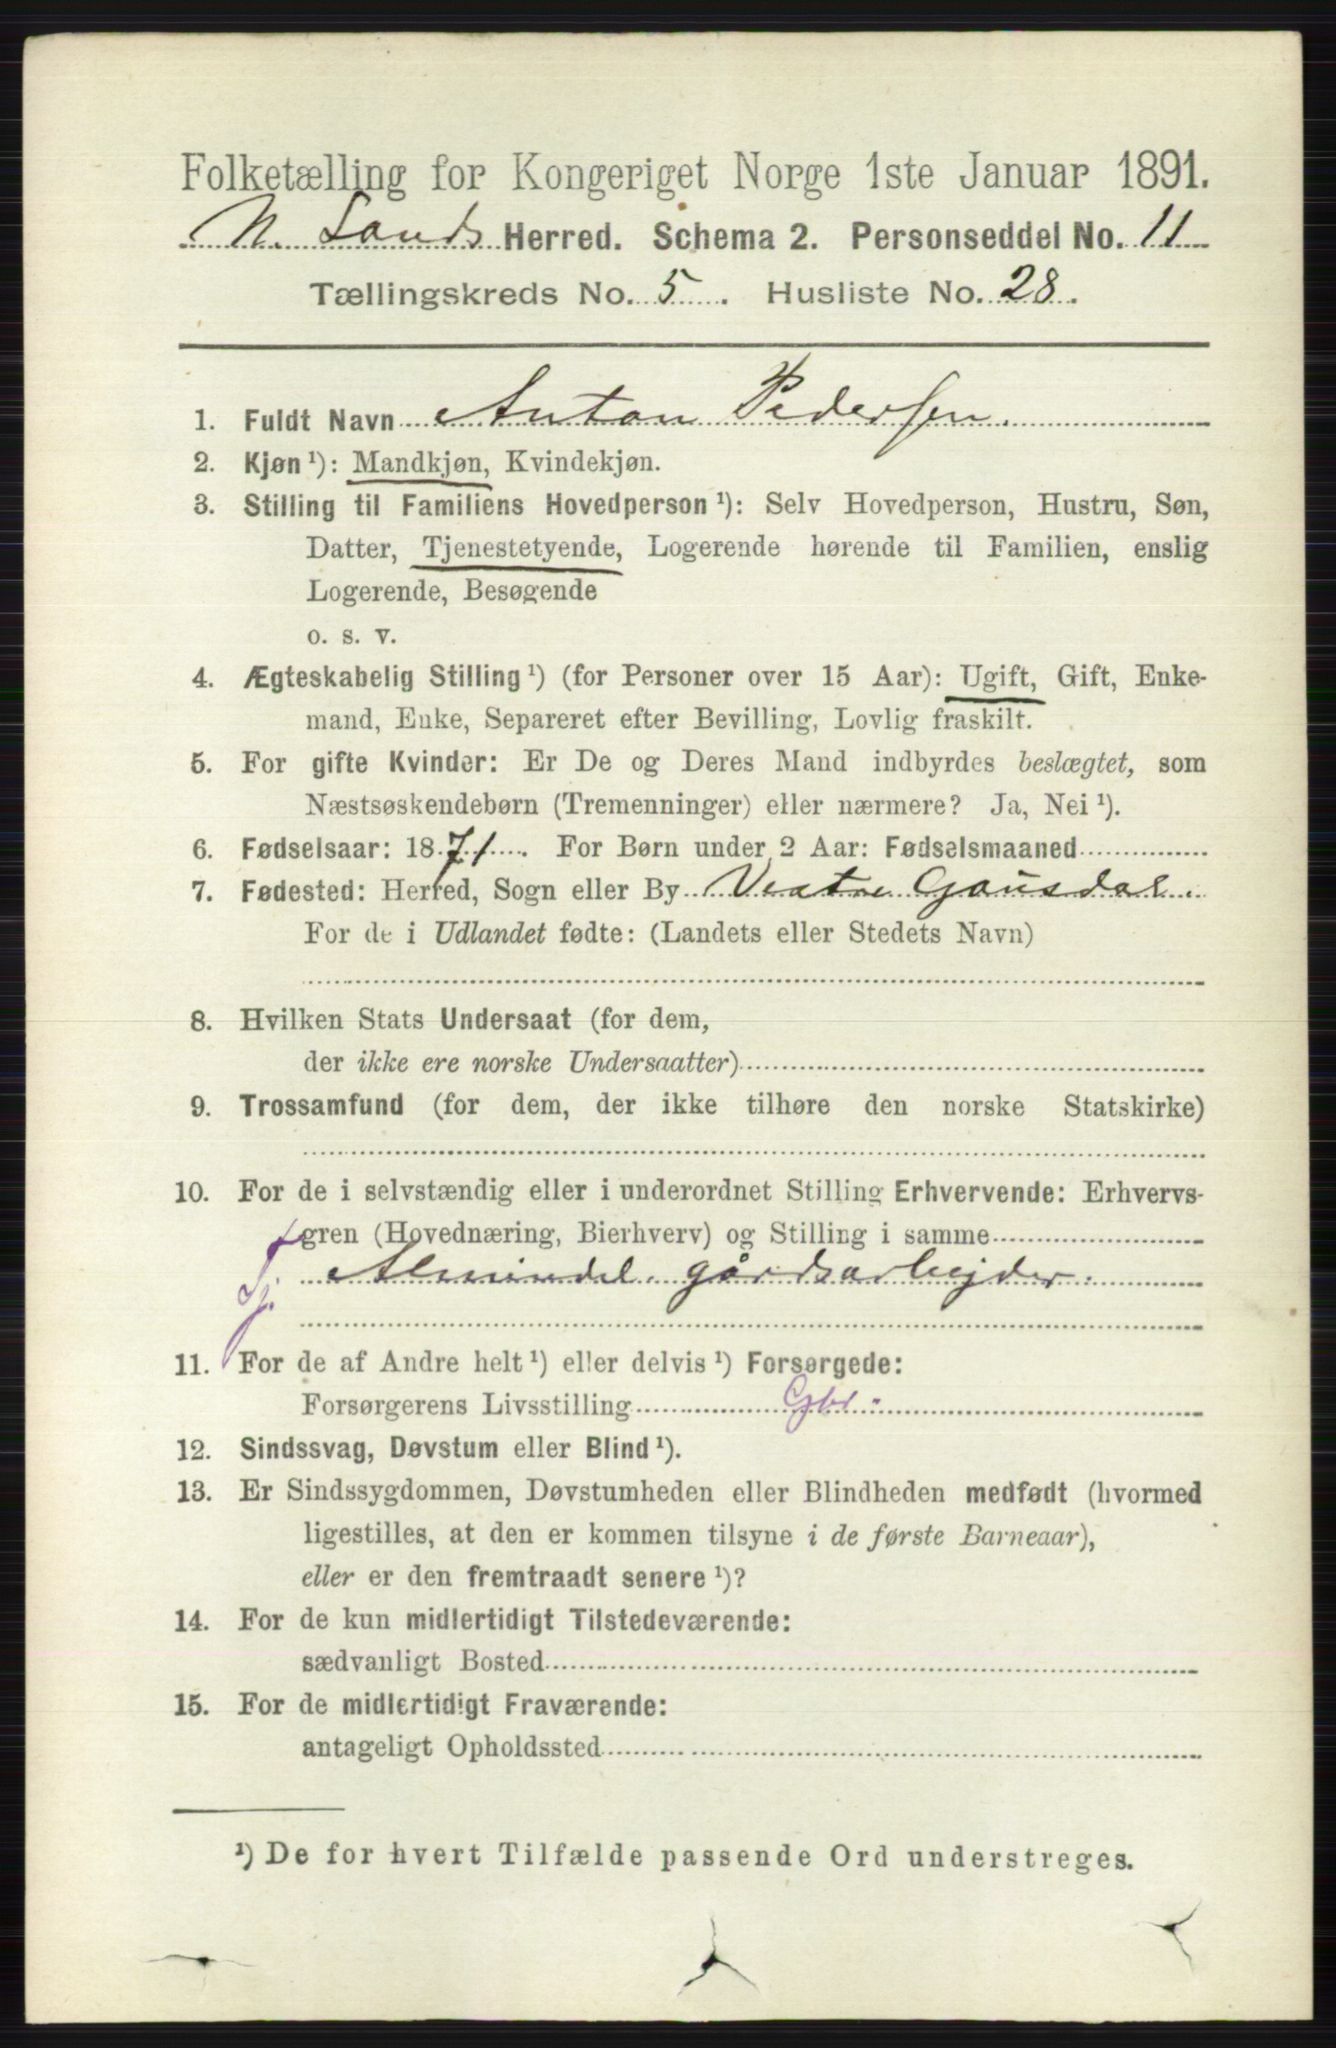 Folketælling for Kongeriget Norge 1ste Januar 1891.
N. Lands Herred. Schema 2. Personseddel No. 11
Tællingskreds No. 5. Husliste No. 28.
1. Fuldt Navn Anton Pedersen.
2. Kjøn ¹): Mandkjøn, Kvindekjøn.
3. Stilling til Familiens Hovedperson ¹): Selv Hovedperson, Hustru, Søn,
Datter, Tjenestetyende, Logerende hørende til Familien, enslig
Logerende, Besøgende
o. s. v.
4. Ægteskabelig Stilling ¹) (for Personer over 15 Aar): Ugift, Gift, Enke-
mand, Enke, Separeret efter Bevilling, Lovlig fraskilt.
5. For gifte Kvinder: Er De og Deres Mand indbyrdes beslægtet, som
Næstsøskendebørn (Tremenninger) eller nærmere? Ja, Nei ¹).
6. Fødselsaar: 1871. For Børn under 2 Aar: Fødselsmaaned
7. Fødested: Herred, Sogn eller By Vestre Gausdal.
For de i Udlandet fødte: (Landets eller Stedets Navn)
8. Hvilken Stats Undersaat (for dem,
der ikke ere norske Undersaatter)
9. Trossamfund (for dem, der ikke tilhøre den norske Statskirke)
10. For de i selvstændig eller i underordnet Stilling Erhvervende: Erhvervs-
gren (Hovednæring, Bierhverv) og Stilling i samme
Tj. Almindel. gårdsarbejder.
11. For de af Andre helt ¹) eller delvis ¹) Forsørgede:
Forsørgerens Livsstilling Gbr.
12. Sindssvag, Døvstum eller Blind ¹).
13. Er Sindssygdommen, Døvstumheden eller Blindheden medfødt (hvormed
ligestilles, at den er kommen tilsyne i de første Barneaar),
eller er den fremtraadt senere ¹)?
14. For de kun midlertidigt Tilstedeværende:
sædvanligt Bosted
15. For de midlertidigt Fraværende:
antageligt Opholdssted
¹) De for hvert Tilfælde passende Ord understreges.